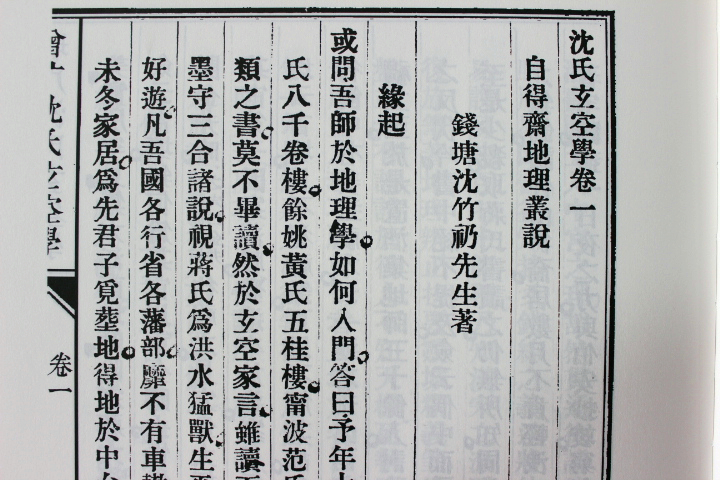 沈氏玄空學卷一
自得齋地理叢說
錢塘沈竹礽先生著
緣起
或問吾師於地理學如何入門答曰予年
氏八千卷樓餘姚黃氏五桂樓甯波范氏
類之書莫不畢讀然於玄空家言雖讀
墨守三合諸說視蔣氏為洪水猛獸生平
好遊凡吾國各行省各藩部靡不有車轍
未冬家居為先君子覓塟地得地於中
沈氏玄空學
卷一